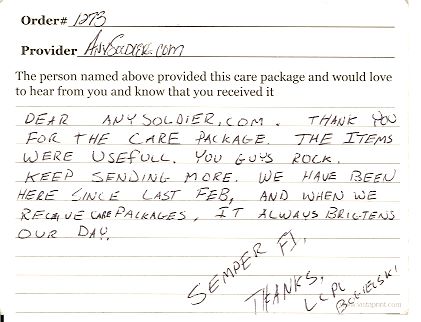 Order# 1273
Provider AnySoldier.com
The person named above provided this care package and would love
to hear from you and know that you received it
DEAR ANYSOLDIER.COM. THANK YOU
FOR THE CARE PACKAGE. THE ITEMS
WERE USEFULL. YOU GUYS ROCK.
KEEP SENDING MORE. WE HAVE BEEN
HERE SINCE LAST FEB, AND WHEN WE
RECEIVE CARE PACKAGES, IT ALWAYS BRIGTENS
OUR DAY.
SEMPER FI,
THANKS,
LCPL